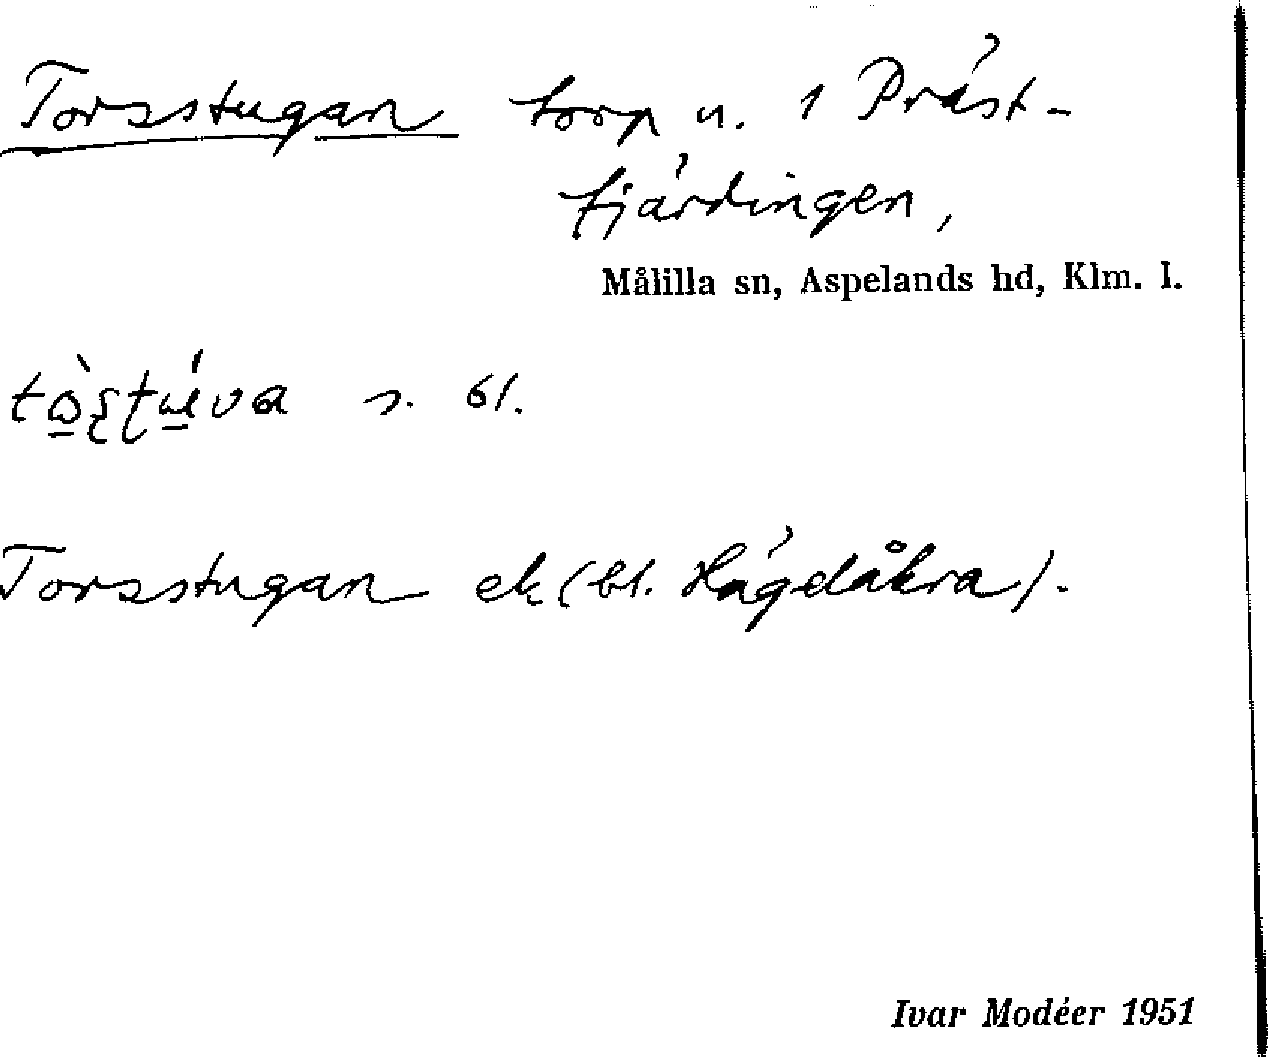 Torsstugan torp u. 1 Präst-
fjärdingen,
Målilla sn, Aspelands hd, Klm. l.
s. 61.
Torsstugan ek (bl. Hägdåkra).
Ivar Modéer 1951